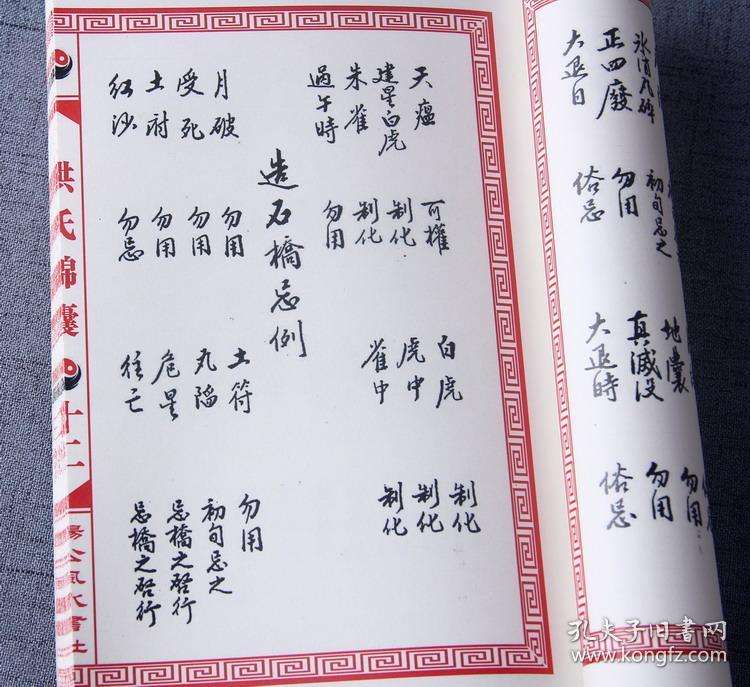 冰消瓦碎 初旬忌之 地囊 勿用
正四廢 勿用 真滅没 勿用
大退日 俗忌 大退時 俗忌
天瘟 可權 白虎 制化
建星白虎 制化 虎中 制化
朱雀 制化 雀中 制化
過午時 勿用
造石橋忌例
月破 勿用 土符 勿用
受死 勿用 九陷 初旬忌之
土府 勿用 危星 忌橋之啓行
紅沙 勿忌 往亡 忌橋之啓行
洪氏錦囊 十二
楊公風水書社
孔夫子旧书网
www.kongfz.com